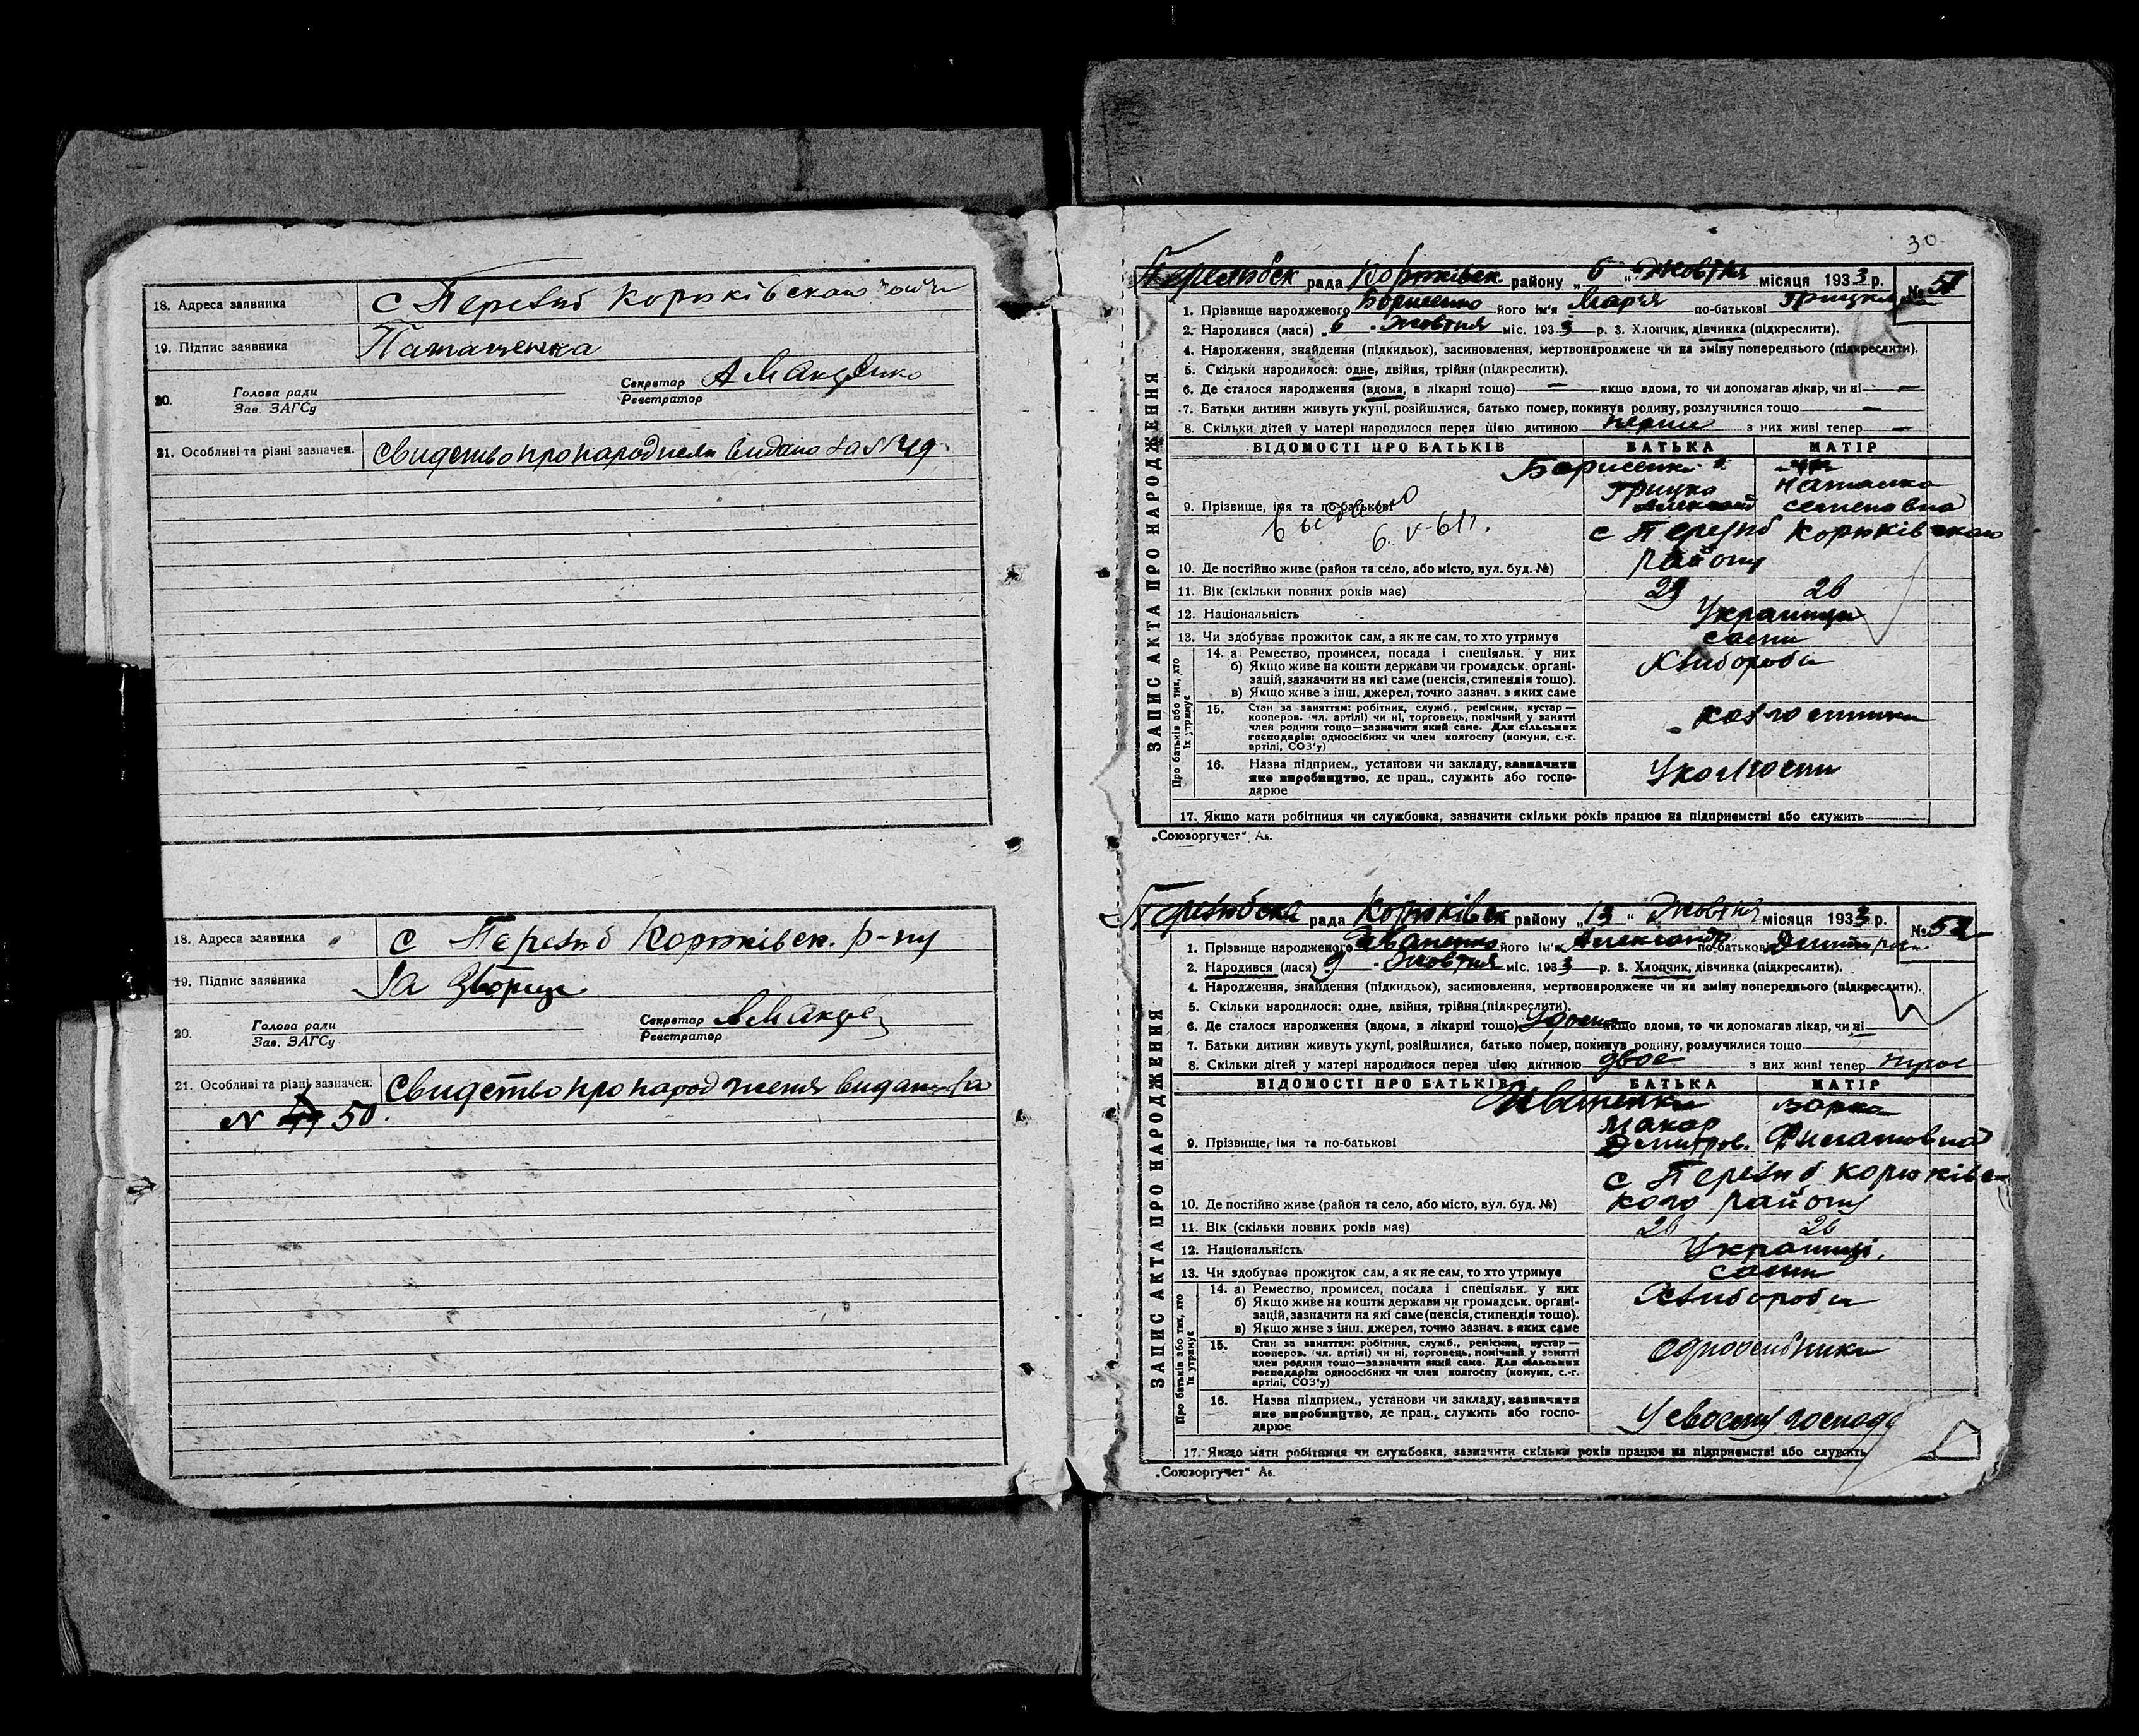 18. Адреса заявника с Перелюб Корюківського
19. Підпис заявника
20. Голова ради
Зав. ЗАГСу
Секретар
Реєстратор
21. Особливі та різні зазначен. Свидетство про народження видано за № 49.
18. Адреса заявника с Перелюб Корюківск. р-ну
19. Підпис заявника За
20. Голова ради
Зав. ЗАГСу
Секретар
Реєстратор
21. Особливі та різні зазначен. Свидетство про народження видано за
N 50.
30
Перелюбск рада Корюківск. району „6“ Жовтня місяця 1933 р. № 51
ЗАПИС АКТА ПРО НАРОДЖЕННЯ
1. Прізвище народженого Борисенко його ім'я Марія по-батькові
2. Народився (лася) „6 „ Жовтня міс. 1933 р. 3. Хлопчик, дівчинка (підкреслити).
4. Народження, знайдення (підкидьок), засиновлення, мертвонароджене чи на зміну попереднього (підкреслити).
5. Скільки народилося: одне, двійня, трійня (підкреслити).
6. Де сталося народження (вдома, в лікарні тощо) — якщо вдома, то чи допомагав лікар, чи ні —
7. Батьки дитини живуть укупі, розійшлися, батько помер, покинув родину, розлучилися тощо —
8. Скільки дітей у матері народилося перед цією дитиною перше з них живі тепер —
ВІДОМОСТІ ПРО БАТЬКІВ БАТЬКА МАТІР
Борисенки
Грицко Наталка
9. Прізвище, імя та по-батькові Семеновна
6. V-61 г.
с Перелюб Корюківского
10. Де постійно живе (район та село, або місто, вул. буд. №) Району
11. Вік (скільки повних років має) 23 26
12. Національність Украинци
13. Чи здобуває прожиток сам, а як не сам, то хто утримує сами
Про батьків або тих, хто їх утримує
14. а Ремество, промисел, посада і спеціяльн. у них Хлибороби
б) Якщо живе на кошти держави чи громадськ. органі-
зацій, зазначити на які саме (пенсія, стипендія тощо).
в) Якщо живе з інш. джерел, точно зазнач. з яких саме
15. Стан за заняттям: робітник, служб., ремісник, кустар —
кооперов. (чл. артілі) чи ні, торговець, помічний у занятті
член родини тощо—зазначити який саме. Для сільських
господарів: одноосібних чи член колгоспу (комуни, с.-г.
артілі, СОЗ'у)
колгоспники
16. Назва підприєм., установи чи закладу, зазначити
яке виробництво, де прац., служить або госпо-
дарює
У колгоспи
17. Якщо мати робітниця чи службовка, зазначити скільки років працює на підприємстві або служить
„Союзоргучет“ Аз.
Перелюбска рада Корюківск району „13“ Жовтня місяця 1933 р. № 52
ЗАПИС АКТА ПРО НАРОДЖЕННЯ
1. Прізвище народженого Иваненко його ім'я Александр по-батькові
2. Народився (лася) „9 „ Жовтня міс. 1933 р. 3. Хлопчик, дівчинка (підкреслити).
4. Народження, знайдення (підкидьок), засиновлення, мертвонароджене чи на зміну попереднього (підкреслити).
5. Скільки народилося: одне, двійня, трійня (підкреслити).
6. Де сталося народження (вдома, в лікарні тощо) Удома якщо вдома, то чи допомагав лікар, чи ні
7. Батьки дитини живуть укупі, розійшлися, батько помер, покинув родину, розлучилися тощо
8. Скільки дітей у матері народилося перед цією дитиною двое з них живі тепер трое
ВІДОМОСТІ ПРО БАТЬКІВ БАТЬКА МАТІР
Иваненки
Макар Варка
9. Прізвище, імя та по-батькові Демитров. Филатовна
с Перелюб Корюківс-
10. Де постійно живе (район та село, або місто, вул. буд. №) кого Району
11. Вік (скільки повних років має) 26 26
12. Національність Украинці.
13. Чи здобуває прожиток сам, а як не сам, то хто утримує сами
Про батьків або тих, хто їх утримує
14. а) Ремество, промисел, посада і спеціяльн. у них Хлибороби
б) Якщо живе на кошти держави чи громадськ. органі-
зацій, зазначити на які саме (пенсія, стипендія тощо).
в) Якщо живе з інш. джерел, точно зазнач. з яких саме
15. Стан за заняттям: робітник, служб., ремісник, кустар —
кооперов. (чл. артілі) чи ні, торговець, помічний у занятті
член родини тощо—зазначити який саме. Для сільських
господарів: одноосібних чи член колгоспу (комуни, с.-г.
артілі, СОЗ'у)
одноосибники
16. Назва підприєм., установи чи закладу, зазначити
яке виробництво, де прац., служить або госпо-
дарює
У своєму господ
17. Якщо мати робітниця чи службовка, зазначити скільки років працює на підприємстві або служить
„Союзоргучет“ Аз.